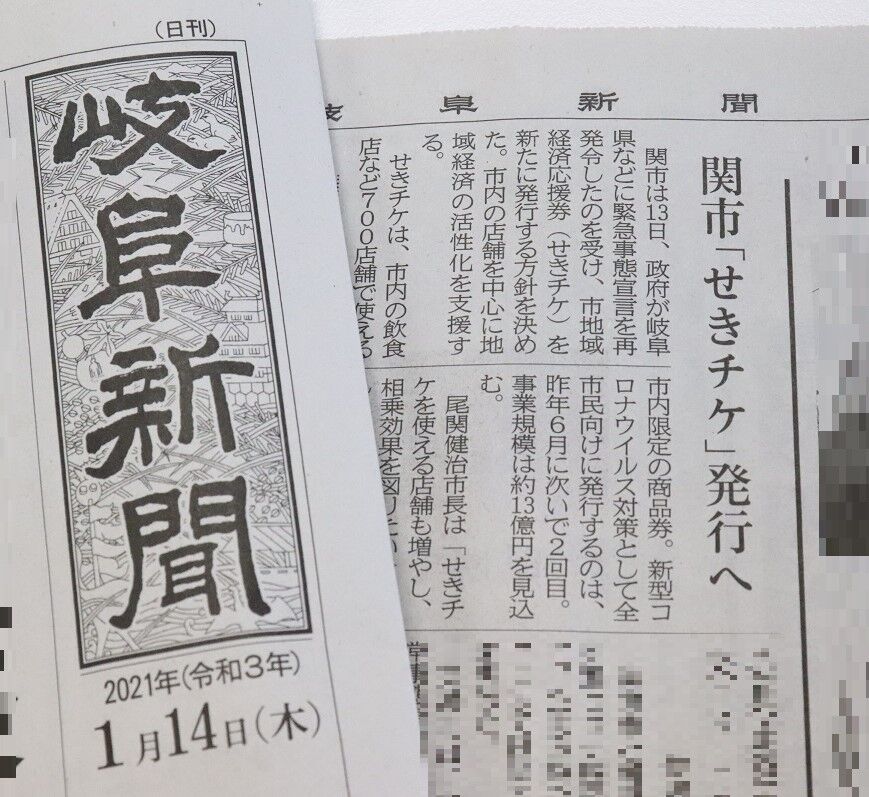 (日刊)
岐阜新聞
2021年(令和3年)
1月14日(木)
阜新聞
関市「せきチケ」発行へ
関市は13日、政府が岐阜
県などに緊急事態宣言を再
発令したのを受け、市地域
経済応援券(せきチケ)を
新たに発行する方針を決め
た。市内の店舗を中心に地
域経済の活性化を支援す
る。
せきチケは、市内の飲食
店など700店舗で使える
市内限定の商品券。新型コ
ロナウイルス対策として全
市民向けに発行するのは、
昨年6月に次いで2回目。
事業規模は約13億円を見込
む。
尾関健治市長は「せきチ
ケを使える店舗も増やし、
相乗効果を図りたい